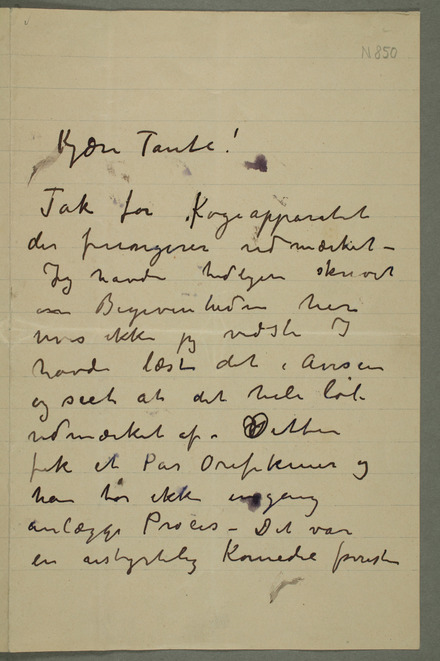 N 850
Kjære Tante!
Tak for Kogeapparatet
der fungerer udmærket –
Jeg havde tidligere skrevet
om Begivenheden her
hvis ikke jeg vidste I
havde læst det i Avisen
og seet at det hele løb
udmærket af. Ditten
fik et Par Ørefikener og
han tør ikke engang
anlægge Proces – Det var
en ustyrtelig Komedie